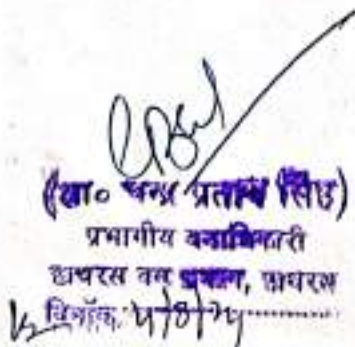 (डा० चन्द्र प्रताप सिंह)
प्रभागीय वनाधिकारी
हाथरस वन प्रभाग, हाथरस
दिनॉक: 4/8/24